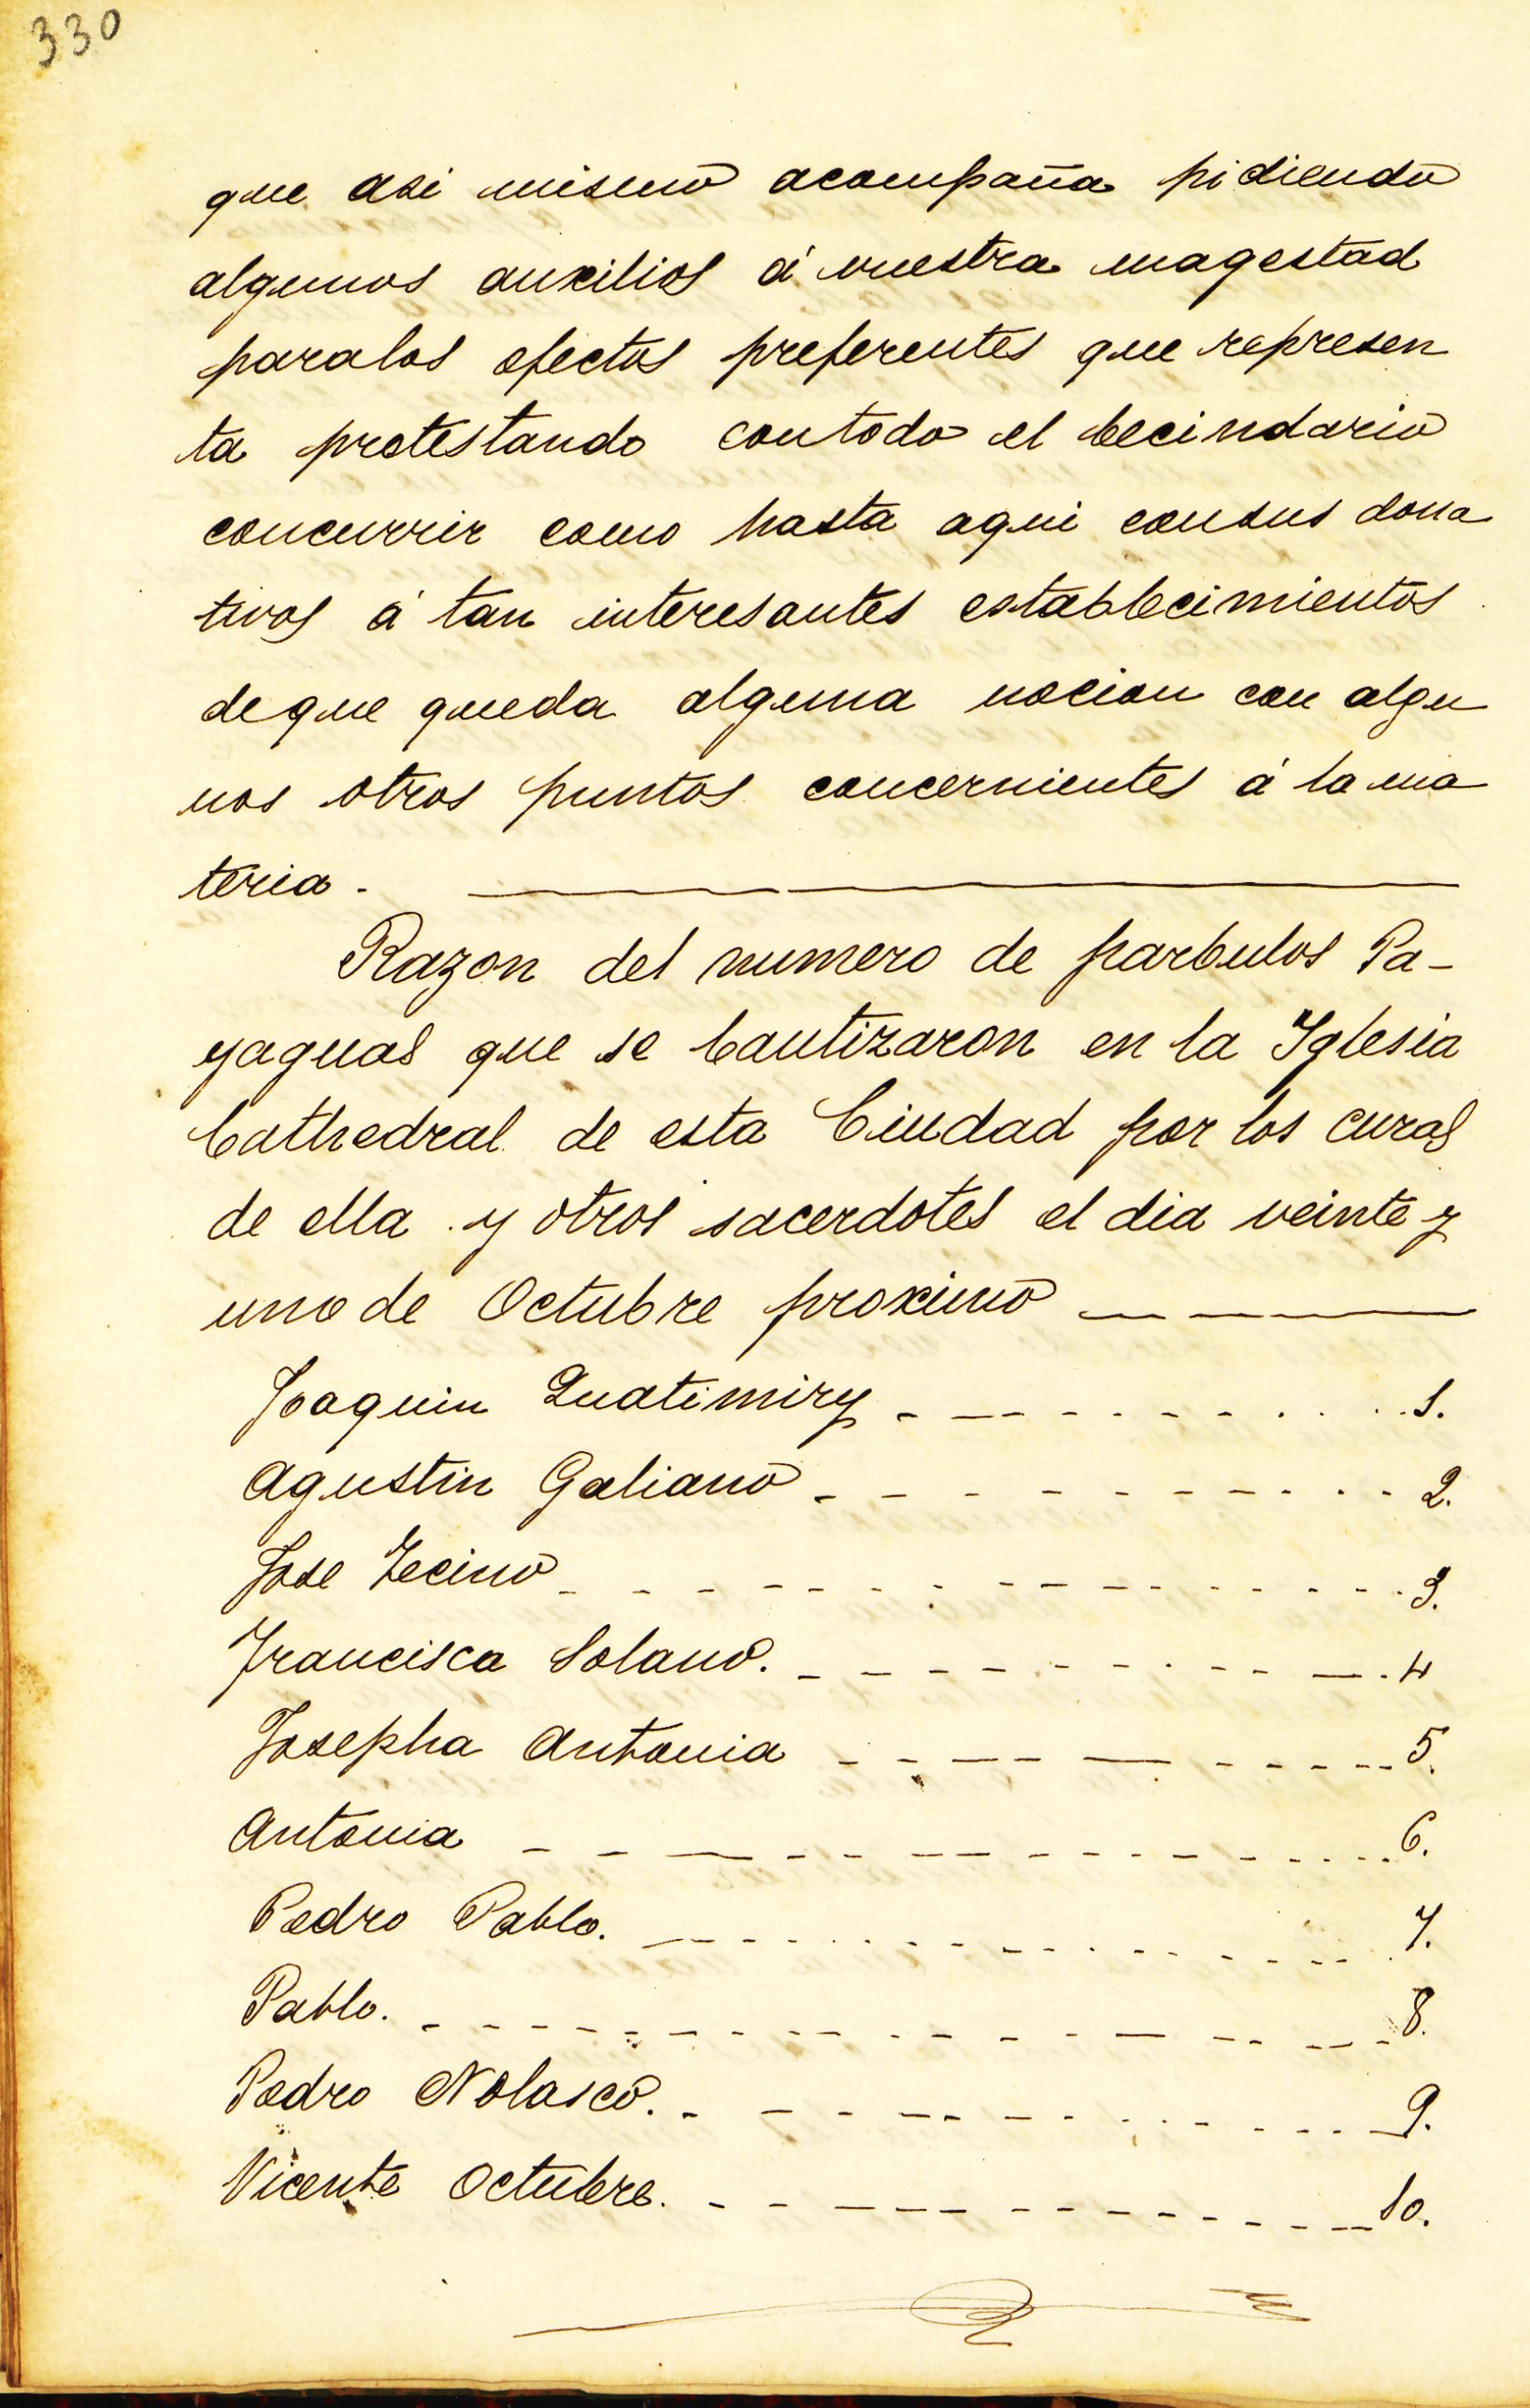 330
que asi mismo acompaña pidiendo
algunos auxilios á vuestra magestad
paralos efectos preferentes que represen
ta protestando contodo el becindario
concurrir como hasta aqui consus dona
tivos á tan interesantes establecimientos
deque queda alguna nocion con algu
nos otros puntos concernientes á la ma
teria.
Razon del numero de parbulos Pa-
yaguas que se bautizaron en la Yglesia
Cathedral de esta Ciudad por los curas
de ella y otros sacerdotes el dia veinte y
uno de Octubre proximo
Joaquin Quatimiry 1.
Agustin Galiano 2.
Jose Zecino 3.
Francisca Solano. 4
Josepha Antonia 5.
Antonia 6.
Pedro Pablo. 7.
Pablo. 8.
Pedro Nolasco. 9.
Vicente Octubre. 10.